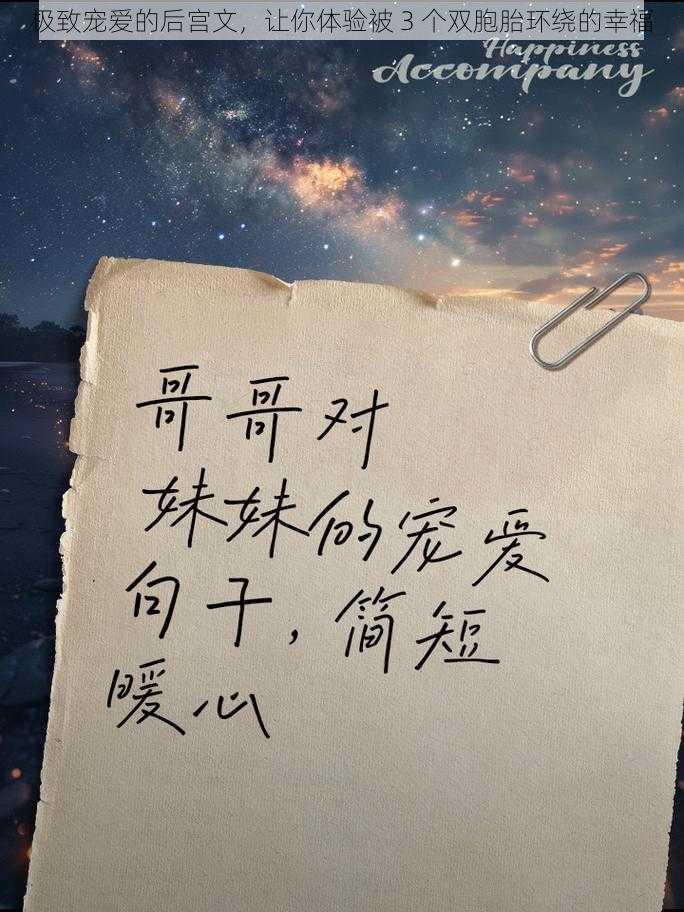 极致宠爱的后宫文，让你体验被 3 个双胞胎环绕的幸福
Happiness
Accompany
哥哥对
妹妹的宠爱
句子，简短
暖心